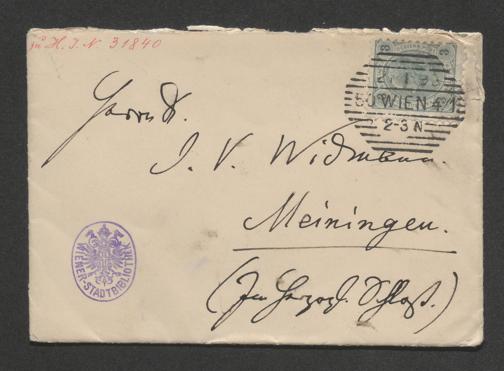 zu H. I. N. 31840
3 3
50 WIEN 4/1
2-3 N
Herrn Dr.
J. V. Widmann.
Meiningen.
(Im herzogl. Schloß.)
WIENER-STADTBIBLIOTHEK